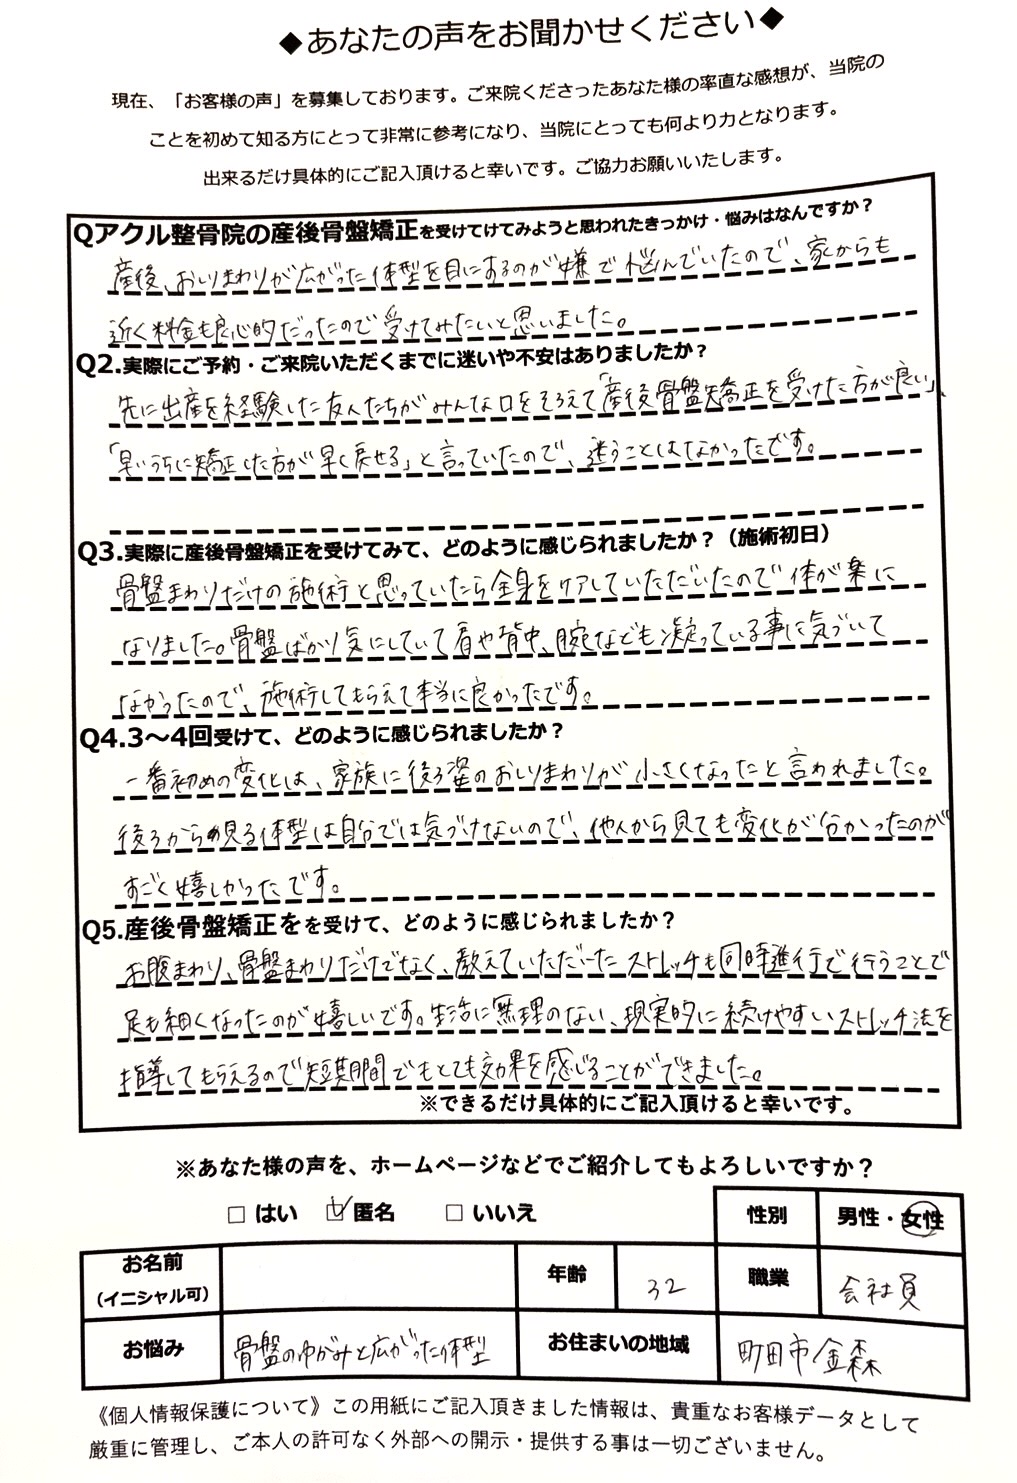 ◆あなたの声をお聞かせください◆
現在、「お客様の声」を募集しております。ご来院くださったあなた様の率直な感想が、当院の
ことを初めて知る方にとって非常に参考になり、当院にとっても何より力となります。
出来るだけ具体的にご記入頂けると幸いです。ご協力お願いいたします。
Qアクル整骨院の産後骨盤矯正を受けてけてみようと思われたきっかけ・悩みはなんですか？
産後、おしりまわりが広がった体型を目にするのが嫌で悩んでいたので、家からも
近く料金も良心的だったので受けてみたいと思いました。
Q2.実際にご予約・ご来院いただくまでに迷いや不安はありましたか？
先に出産を経験した友人たちがみんな口をそろえて「産後骨盤矯正を受けた方が良い」、
「早いうちに矯正した方が早く戻せる」と言っていたので、迷うことはなかったです。
Q3.実際に産後骨盤矯正を受けてみて、どのように感じられましたか？（施術初日）
骨盤まわりだけの施術と思っていたら全身をケアしていただいたので体が楽に
なりました。骨盤ばかり気にしていて肩や背中、腕なども凝っている事に気づいて
なかったので、施術してもらえて本当に良かったです。
Q4.3～4回受けて、どのように感じられましたか？
一番初めの変化は、家族に後ろ姿のおしりまわりが小さくなったと言われました。
後ろから見る体型は自分では気づけないので、他人から見ても変化が分かったのが
すごく嬉しかったです。
Q5.産後骨盤矯正をを受けて、どのように感じられましたか？
お腹まわり、骨盤まわりだけでなく、教えていただいたストレッチも同時進行で行うことで
足も細くなったのが嬉しいです。生活に無理のない、現実的に続けやすいストレッチ法を
指導してもらえるので短期間でもとても効果を感じることができました。
※できるだけ具体的にご記入頂けると幸いです。
※あなた様の声を、ホームページなどでご紹介してもよろしいですか？
□ はい ☑ 匿名 □ いいえ
性別 男性・女性
お名前
（イニシャル可）
年齢 32 職業 会社員
お悩み 骨盤のゆがみと広がった体型 お住まいの地域 町田市金森
《個人情報保護について》この用紙にご記入頂きました情報は、貴重なお客様データとして
厳重に管理し、ご本人の許可なく外部への開示・提供する事は一切ございません。